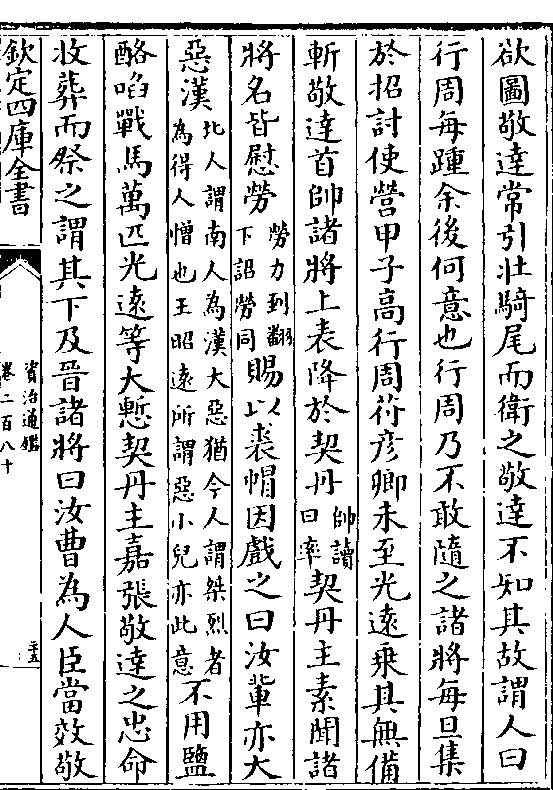 欲圖敬達常引壯騎尾而衛之敬達不知其故謂人曰
行周每踵余後何意也行周乃不敢隨之諸將每旦集
於招討使營甲子高行周符彦卿未至光遠乗其無備
斬敬達首帥諸將上表降於契丹帥讀曰率契丹主素聞諸
將名皆慰勞勞力到翻下詔勞同賜以裘帽因戲之曰汝輩亦大
惡漢北人謂南人為漢大惡猶今人謂桀烈者為得人憎也王昭遠所謂惡小兒亦此意不用鹽
酪啗戰馬萬匹光遠等大慙契丹主嘉張敬達之忠命
收葬而祭之謂其下及晉諸將曰汝曹為人臣當效敬
欽定四庫全書
資治通鑑
卷二百八十
二十五